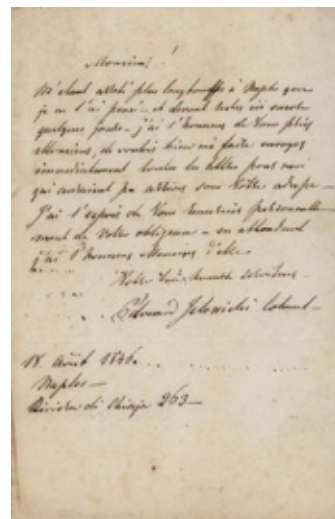 Monsieur!
M'étant arrêté plus longtemps à Naples que
je ne l'ai pensé – et devant rester ici encore
quelques jours – j'ai l'honneur de Vous prier
Monsieur, de vouloir bien me faire envoyer
immédiatement toutes les lettres pour moi
qui auraient pu arriver sous Votre adresse
J'ai l'espoir de Vous remercier personnelle
ment de Votre obligeance – en attendant
j'ai l'honneur Monsieur d'être
Votre très humble serviteur
Edouard Jełowicki
18 Août 1846.
Naples –
Riviera di Chiaja 263 –